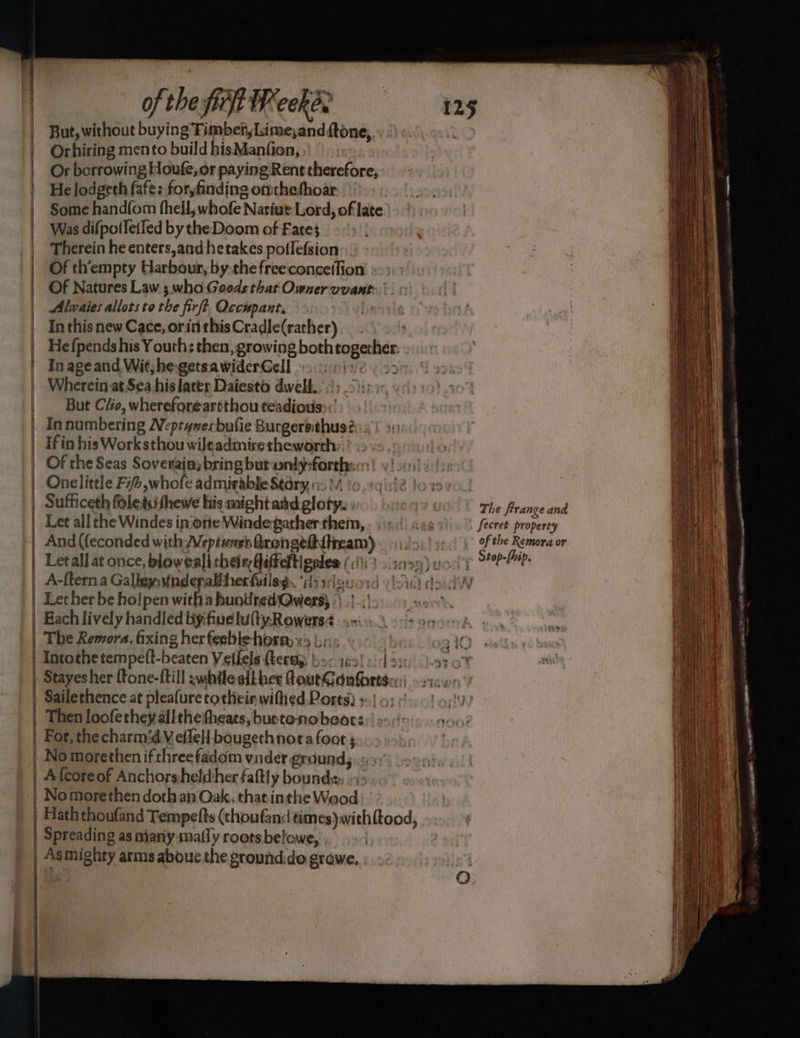 of the first Weeke.
125
But, without buying Timber, Lime, and ſtone,
Or hiring men to build his Manſion,
Or borrowing Houſe, or paying Rent therefore,
He lodgeth ſafe: for, finding on the ſhoar
Some handſom ſhell, whoſe Natiue Lord, of late
Was diſpoſſeſſed by the Doom of Fate;
Therein he enters, and he takes poſſeſsion
Of th'empty Harbour, by the free conceſſion
Of Natures Law; who Goods that Owner vvant
Alwaies allots to the firſt Occupant.
In this new Cace, or in this Cradle (rather)
He ſpends his Youth: then, growing both together
In age and Wit, he gets a wider Cell
Wherein at Sea his later Daies to dwell.
But Clio, wherefore art thou teadious
In numbering Neptunes buſie Burgers thus?
If in his Works thou wilt admire the worth
Of the Seas Soverain, bring but only forth
One little Fiſh, whoſe admirable Story
Sufficeth ſole to ſhewe his might and glory.
Let all the Windes in one Winde gather them,
And (ſeconded with Neptunes ſtrongeſt ſtream)
Let all at once, blowe all their ſtiffeſt gales
A-ſtern a Galley vnder all her ſails;
Let her be holpen with a hundred Owers,
Each lively handled by fiue luſty Rowers:
The Remora, fixing her feeble horn
Into the tempeſt-beaten Veſſels ſtern,
Stayes her ſtone-ſtill; while all her ſtout Conſorts
Saile thence at pleaſure to their wiſhed Ports)
Then looſe they all the ſheats, but to no boot:
For, the charm'd Veſſell bougeth not a foot;
No more then if three fadom vnder ground,
A ſcore of Anchors held her faſtly bound:
No more then doth an Oak, that in the Wood
Hath thouſand Tempeſts (thouſand times) withſtood,
Spreading as many maſſy roots belowe,
As mighty arms aboue the ground do growe.
O
The ſtrange and
ſecret property
of the Remora or
Stop-ſhip.